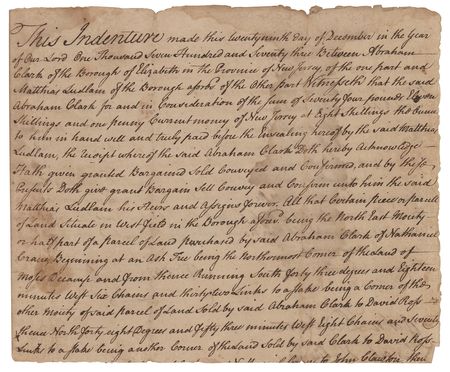 This Indenture made this twentyninth day of December in the Year
of Our Lord One Thousand Seven Hundred and Seventy three Between Abraham
Clark of the Borough of Elizabeth in the Province of New Jersey of the one part and
Matthias Ludlam of the Borough afors.d of the Other part Witnesseth that the said
Abraham Clark for and in Consideration of the sum of Seventy four pounds Eleven
Shillings and one penny Current money of New Jersey at Eight Shillings the ounce
to him in hand well and truly paid before the Ensealing hereof by the said Matthias
Ludlam, the receipt where of the said Abraham Clark Doth hereby Acknowledge
Hath given granted Bargained Sold Conveyed and Confirmed, and by these
presents Doth give grant Bargain Sell Convey and Confirm unto him the said
Matthias Ludlam his Heirs and Assigns forever. All that Certain piece or parcel
of Land Situate in West field in the Borough afors.d being the North East Moiety
or half part of a parcel of Land purchased by said Abraham Clark of Nathaniel
Craig Beginning at an Ash Tree being the Northermost Corner of the Land of
Moses Decamp and from thence Running South forty three degrees and Eighteen
minutes West Six Chains and thirty two Links to a stake being a Corner of the
other moiety of said parcel of Land Sold by said Abraham Clark to David Ross
thence North forty eight Degrees and fifty three minutes West Eight Chains and Seventy
Links to a stake being another Corner of the Land Sold by said Clark to David Ross
to John Clawson then